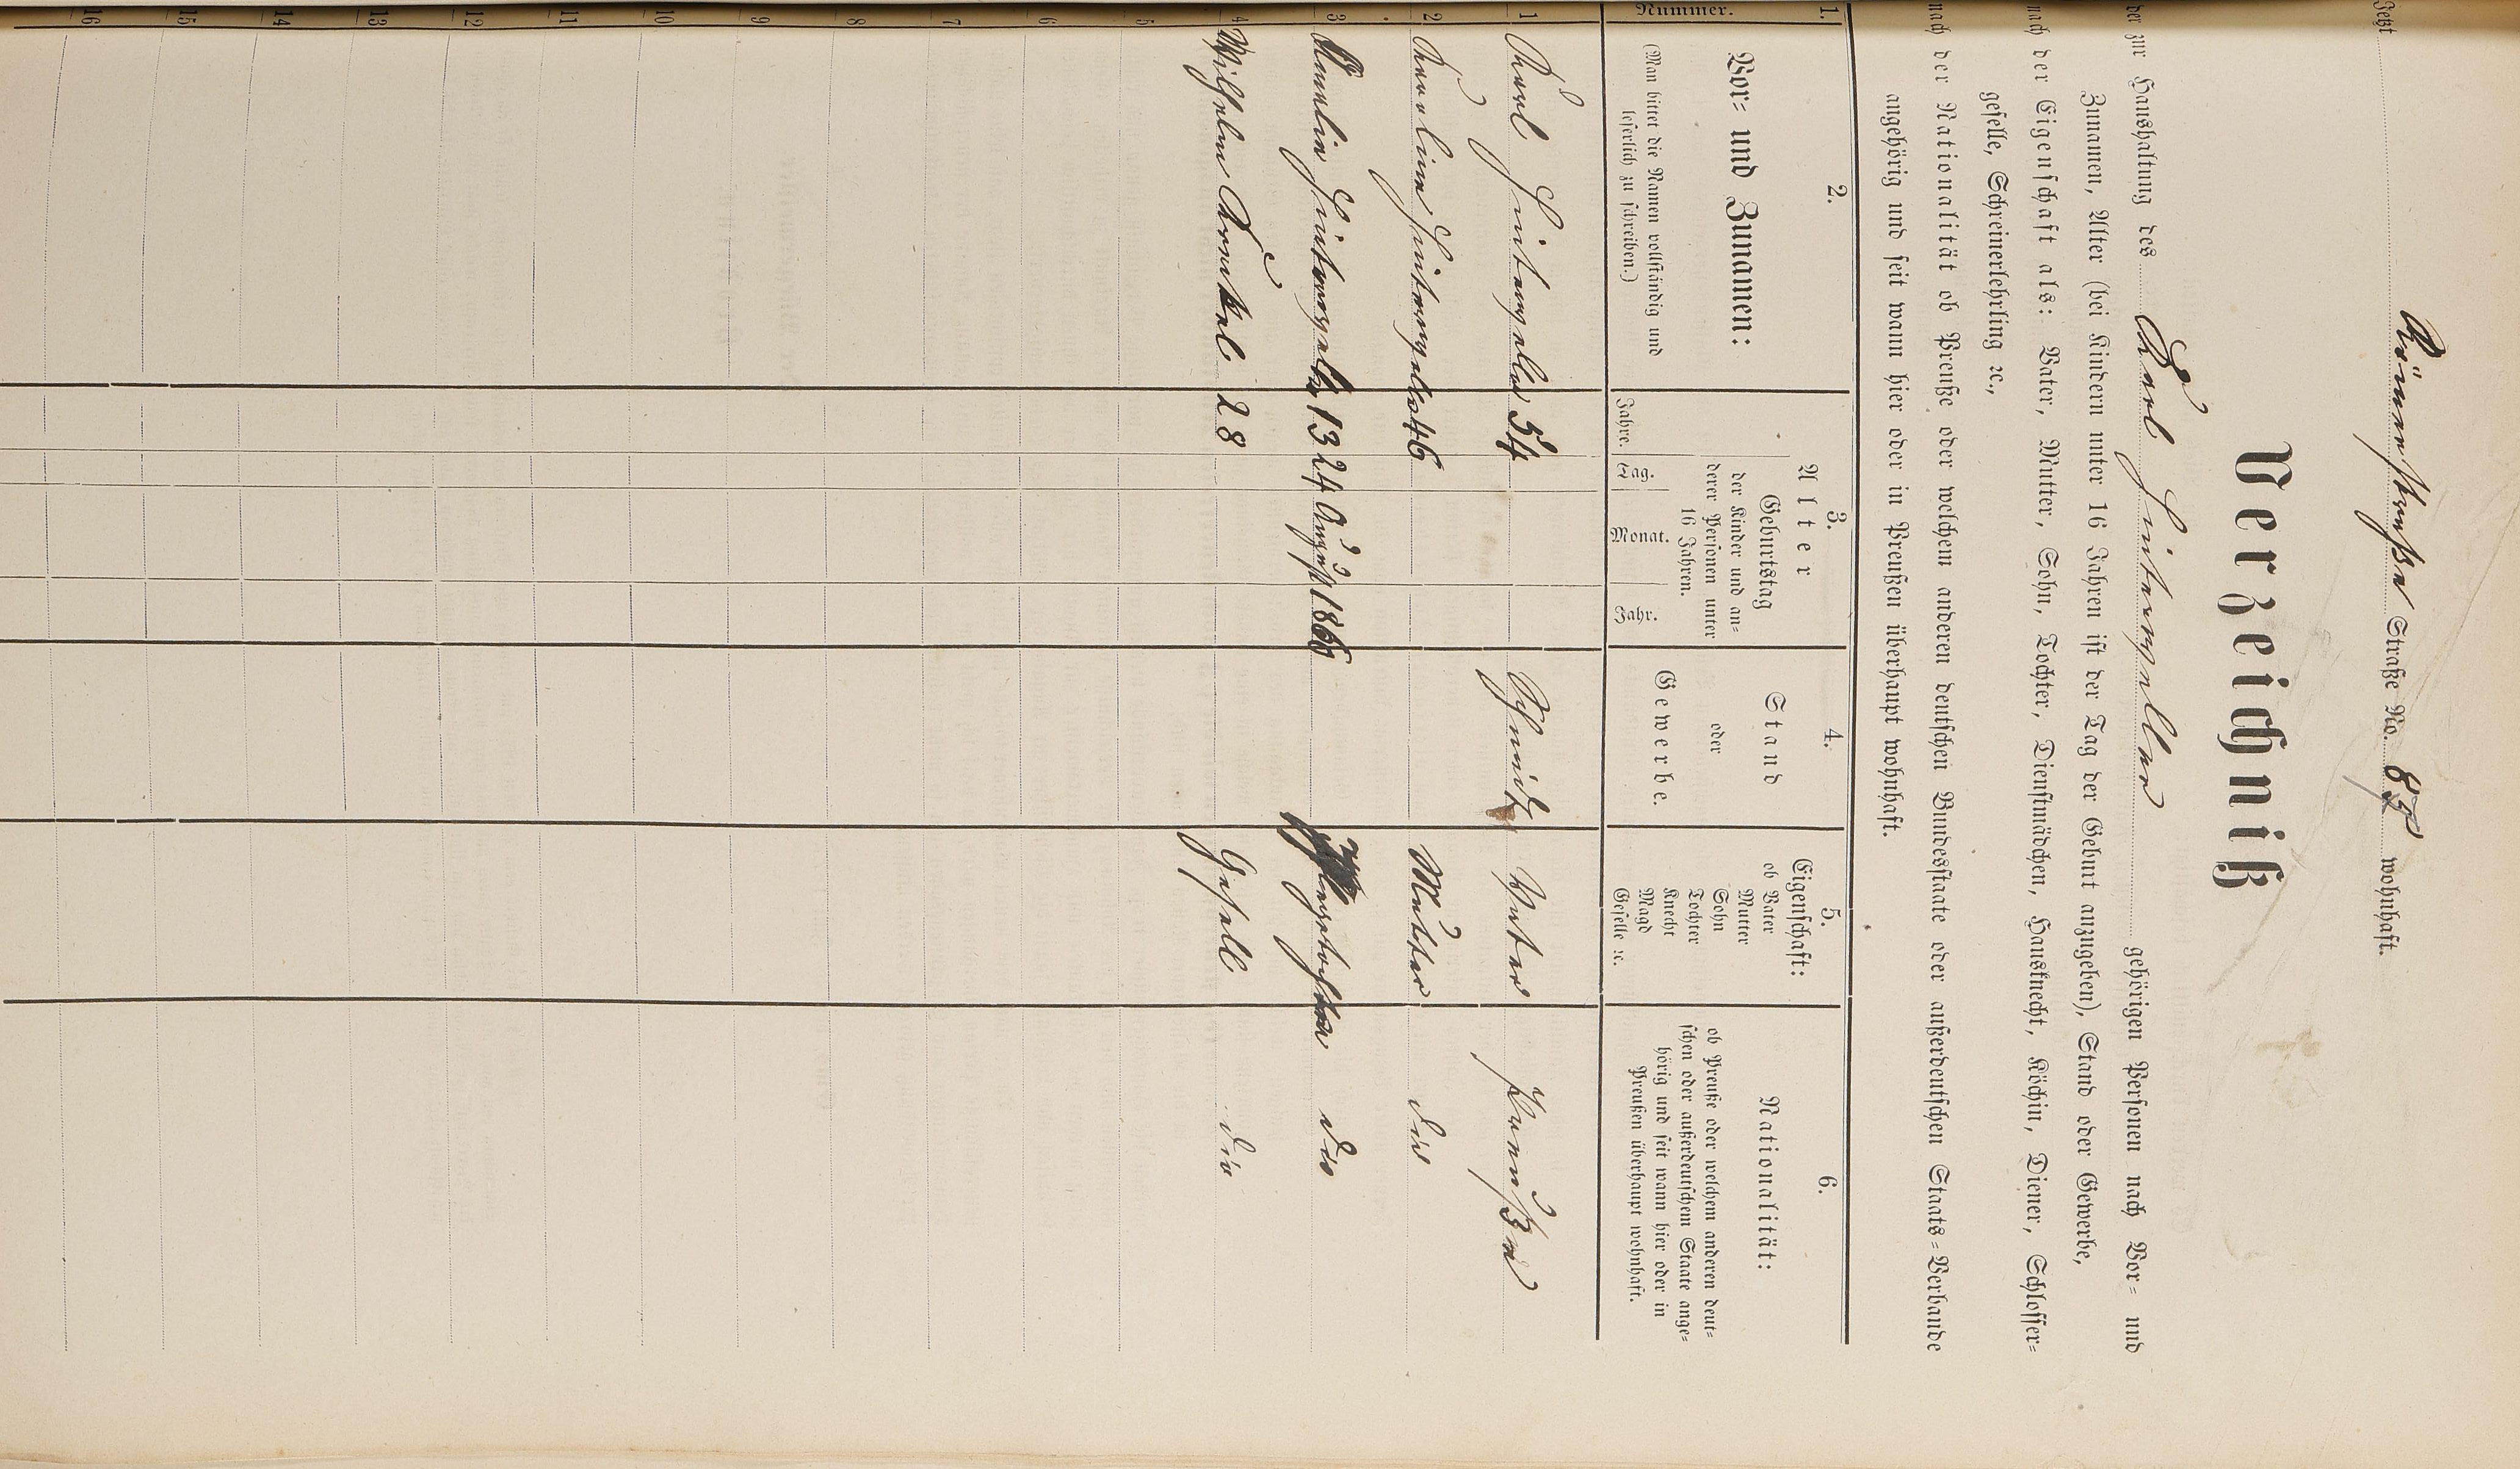 Jetzt Römerstraße Straße No. 87 wohnhaft.
Verzeichniß
der zur Haushaltung des Karl gehörigen Personen nach Vor- und
Zunamen, Alter (bei Kindern unter 16 Jahren ist der Tag der Geburt anzugeben), Stand oder Gewerbe,
nach der Eigenschaft als: Vater, Mutter, Sohn, Tochter, Dienstmädchen, Hausknecht, Köchin, Diener, Schlosser-
geselle, Schreinerlehrling ꝛc.,
nach der Nationalität ob Preuße oder welchem anderen deutschen Bundesstaate oder außerdeutschen Staats-Verbande
angehörig und seit wann hier oder in Preußen überhaupt wohnhaft.
1. 2. 3. 4. 5. 6.
Nummer.
Vor- und Zunamen:
(Man bittet die Namen vollständig und
leserlich zu schreiben.)
Alter
Jahre.
Geburtstag
der Kinder und an-
derer Personen unter
16 Jahren.
Tag. Monat. Jahr.
Stand
oder
Gewerbe.
Eigenschaft:
ob Vater
Mutter
Sohn
Tochter
Knecht
Magd
Geselle ꝛc.
Nationalität:
ob Preuße oder welchem anderen deut-
schen oder außerdeutschem Staate ange-
hörig und seit wann hier oder in
Preußen überhaupt wohnhaft.
1 Karl 54 Schmidt Vater Preuße
2 Karoline 46 Mutter dio
3 13 24 August 1866 Pflegetochter dio
4 Wilhelm 28 Gesell dio
5
6
7
8
9
10
11
12
13
14
15
16